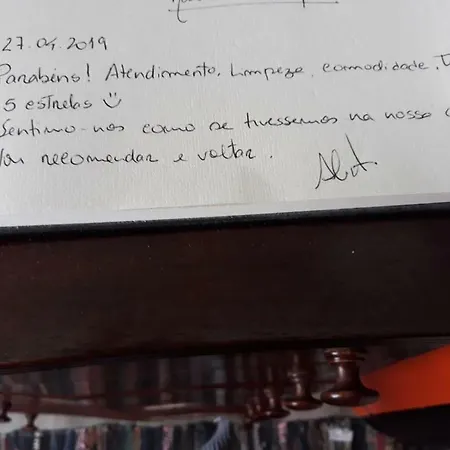 27.04.2019
Parabéns! Atendimento, Limpeza, comodidade, T
5 estrelas
Sentimo-nos como se tivessemos na nossa c
Vou recomendar e voltar.